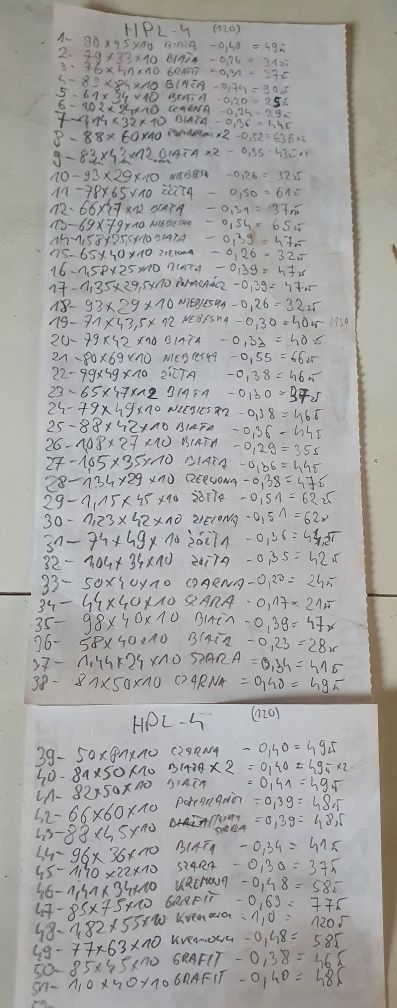 HPL-4 (120)
1- 90×45×10 BIAŁA -0,40 = 49zł
2- 79×33×10 BIAŁA -0,26 = 31zł
3- 76×41×10 GRAFIT -0,31 = 37zł
4- 89×84×10 BIAŁA -0,74 = 90zł
5- 61×34×10 BIAŁA -0,20 = 25zł
6- 102×24×10 CZARNA -0,24 = 29zł
7- 114×32×10 BIAŁA -0,36 = 44zł
8- 88×60×10 ×2 -0,52 = 63zł×2
9- 83×43×12 BIAŁA ×2 -0,35 = 43zł×2
10- 93×29×10 NIEBIESKA -0,26 = 32zł
11- 78×65×10 ŻÓŁTA - 0,50 = 61zł
12- 66×47×12 BIAŁA -0,31 = 37zł
13- 69×79×10 NIEBIESKA -0,54 = 65zł
14- 1,58×25,5×10 BIAŁA - 0,39 = 47zł
15- 65×40×10 ZIELONA - 0,26 = 32zł
16- 1,58×25×10 BIAŁA -0,39 = 47zł
17- 1,35×29,5×10 POMARAŃCZ -0,39 = 47zł
18- 93×29×10 NIEBIESKA -0,26 = 32zł
19- 71×43,5×12 NIEBIESKA -0,30 = 40zł
20- 79×42×10 BIAŁA -0,33 = 40zł
21- 80×69×10 NIEBIESKA -0,55 = 66zł
22- 79×49×10 ŻÓŁTA -0,38 = 46zł
23- 65×47×12 BIAŁA -0,30 = 37zł
24- 79×49×10 NIEBIESKA -0,38 = 46zł
25- 88×42×10 BIAŁA -0,36 - 44zł
26- 108×27×10 BIAŁA -0,29 = 35zł
27- 105×35×10 BIAŁA -0,36 = 44zł
28- 134×29×10 CZERWONA -0,38 = 47zł
29- 1,15×45×10 ŻÓŁTA -0,51 = 62zł
30- 1,23×42×10 ZIELONA -0,51 = 62zł
31- 74×49×10 ŻÓŁTA -0,36 = 44zł
32- 104×34×10 ŻÓŁTA -0,35 = 42zł
33- 50×40×10 CZARNA -0,20 = 24zł
34- 44×40×10 SZARA -0,17 = 21zł
35- 98×40×10 BIAŁA -0,39 = 47zł
36- 58×40×10 BIAŁA -0,23 = 28zł
37- 1,44×24×10 SZARA = 0,34 = 41zł
38- 81×50×10 CZARNA = 0,40 = 49zł
HPL-4 (120)
39- 50×81×10 CZARNA - 0,40 = 49zł
40- 81×50×10 BIAŁA ×2 = 0,40 = 49zł×2
41- 82×50×10 BIAŁA = 0,41 = 49zł
42- 66×60×10 POMARAŃCZ = 0,39 = 48zł
43- 88×45×10 SZARA = 0,39 = 48zł
44- 96×36×10 BIAŁA - 0,34 = 41zł
45- 1,40×22×10 SZARA - 0,30 = 37zł
46- 1,41×34×10 KREMOWA - 0,48 = 58zł
47- 85×75×10 GRAFIT - 0,63 = 77zł
48- 1,82×55×10 KREMOWA - 1,0 = 120zł
49- 77×63×10 KREMOWA - 0,48 = 58zł
50- 85×45×10 GRAFIT - 0,38 = 46zł
51- 1,0×40×10 GRAFIT - 0,40 = 48zł